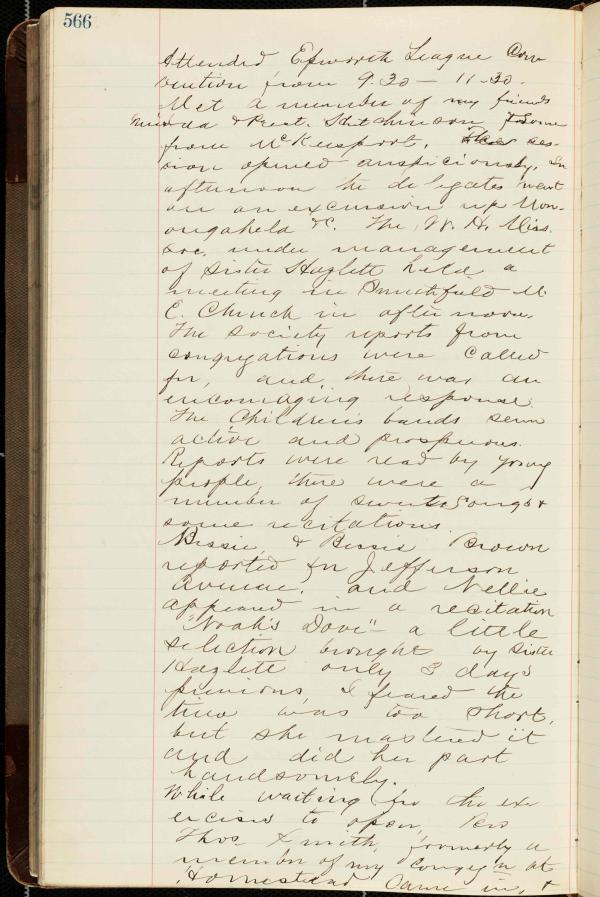 566
Attended Epworth League Con
vention from 9.30 - 11.30.
Met a number of my friends
& Prest. Hutchinson & some
from McKeesport. The ses-
sion opened auspiciously. In
afternoon the delegates went
on an excursion up Mon-
ongahela &c. The W. H. Miss.
Soc. under management
of Sister Hazlett held a
meeting in Smithfield M.
E. Church in afternoon.
The society reports from
congregations were called
for, and there was an
encouraging response.
The Children's bands seem
active and prosperous.
Reports were read by young
people, there were a
number of sweet songs &
some recitations.
Bessie & Bessie Brown
reported for Jefferson
Avenue, and Nellie
appeared in a recitation
"Noah's Dove" - a little
selection brought by Sister
Hazlett only 3 days
previous, I feared the
time was too short,
but she mastered it
and did her part
handsomely.
While waiting for the ex-
ercises to open, Rev
Thos. Smith, formerly a
member of my congeg'n at
Homestead came in, &